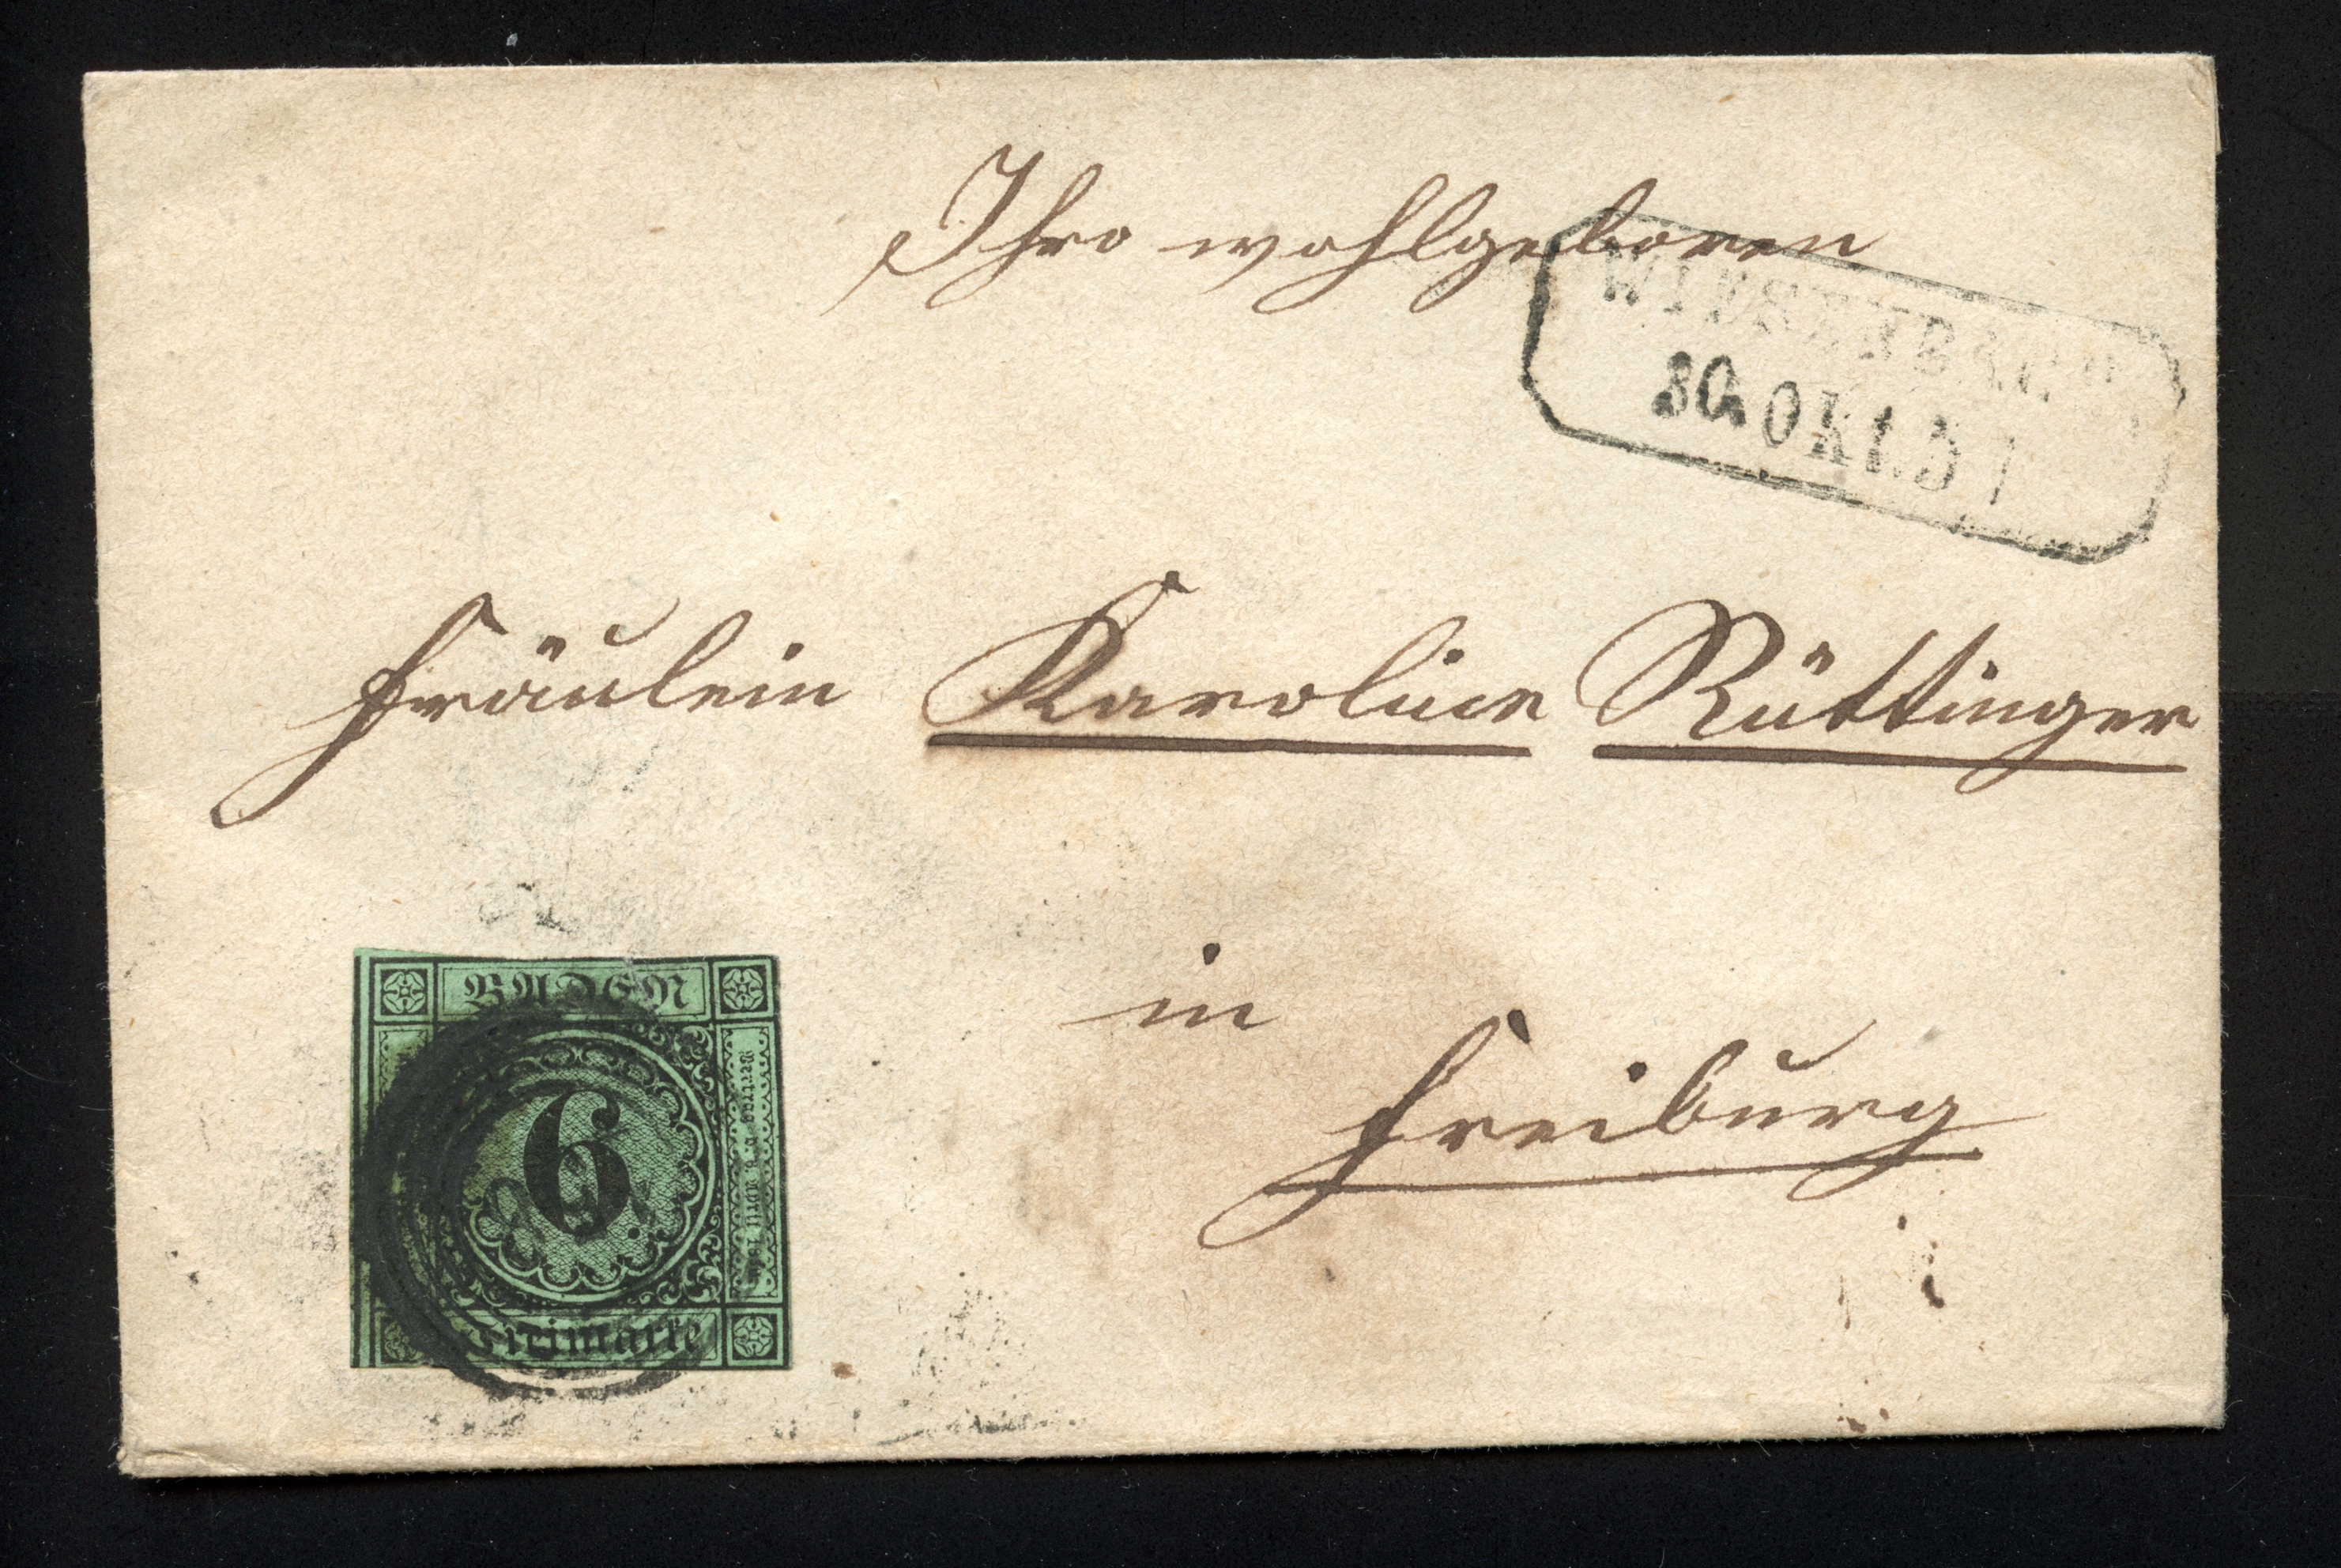 Ihro wohlgeboren
WIESENBACH
30. OKT. 5
Fräulein Karoline Rüttinger
in
Freiburg
BADEN
6
Freimarke